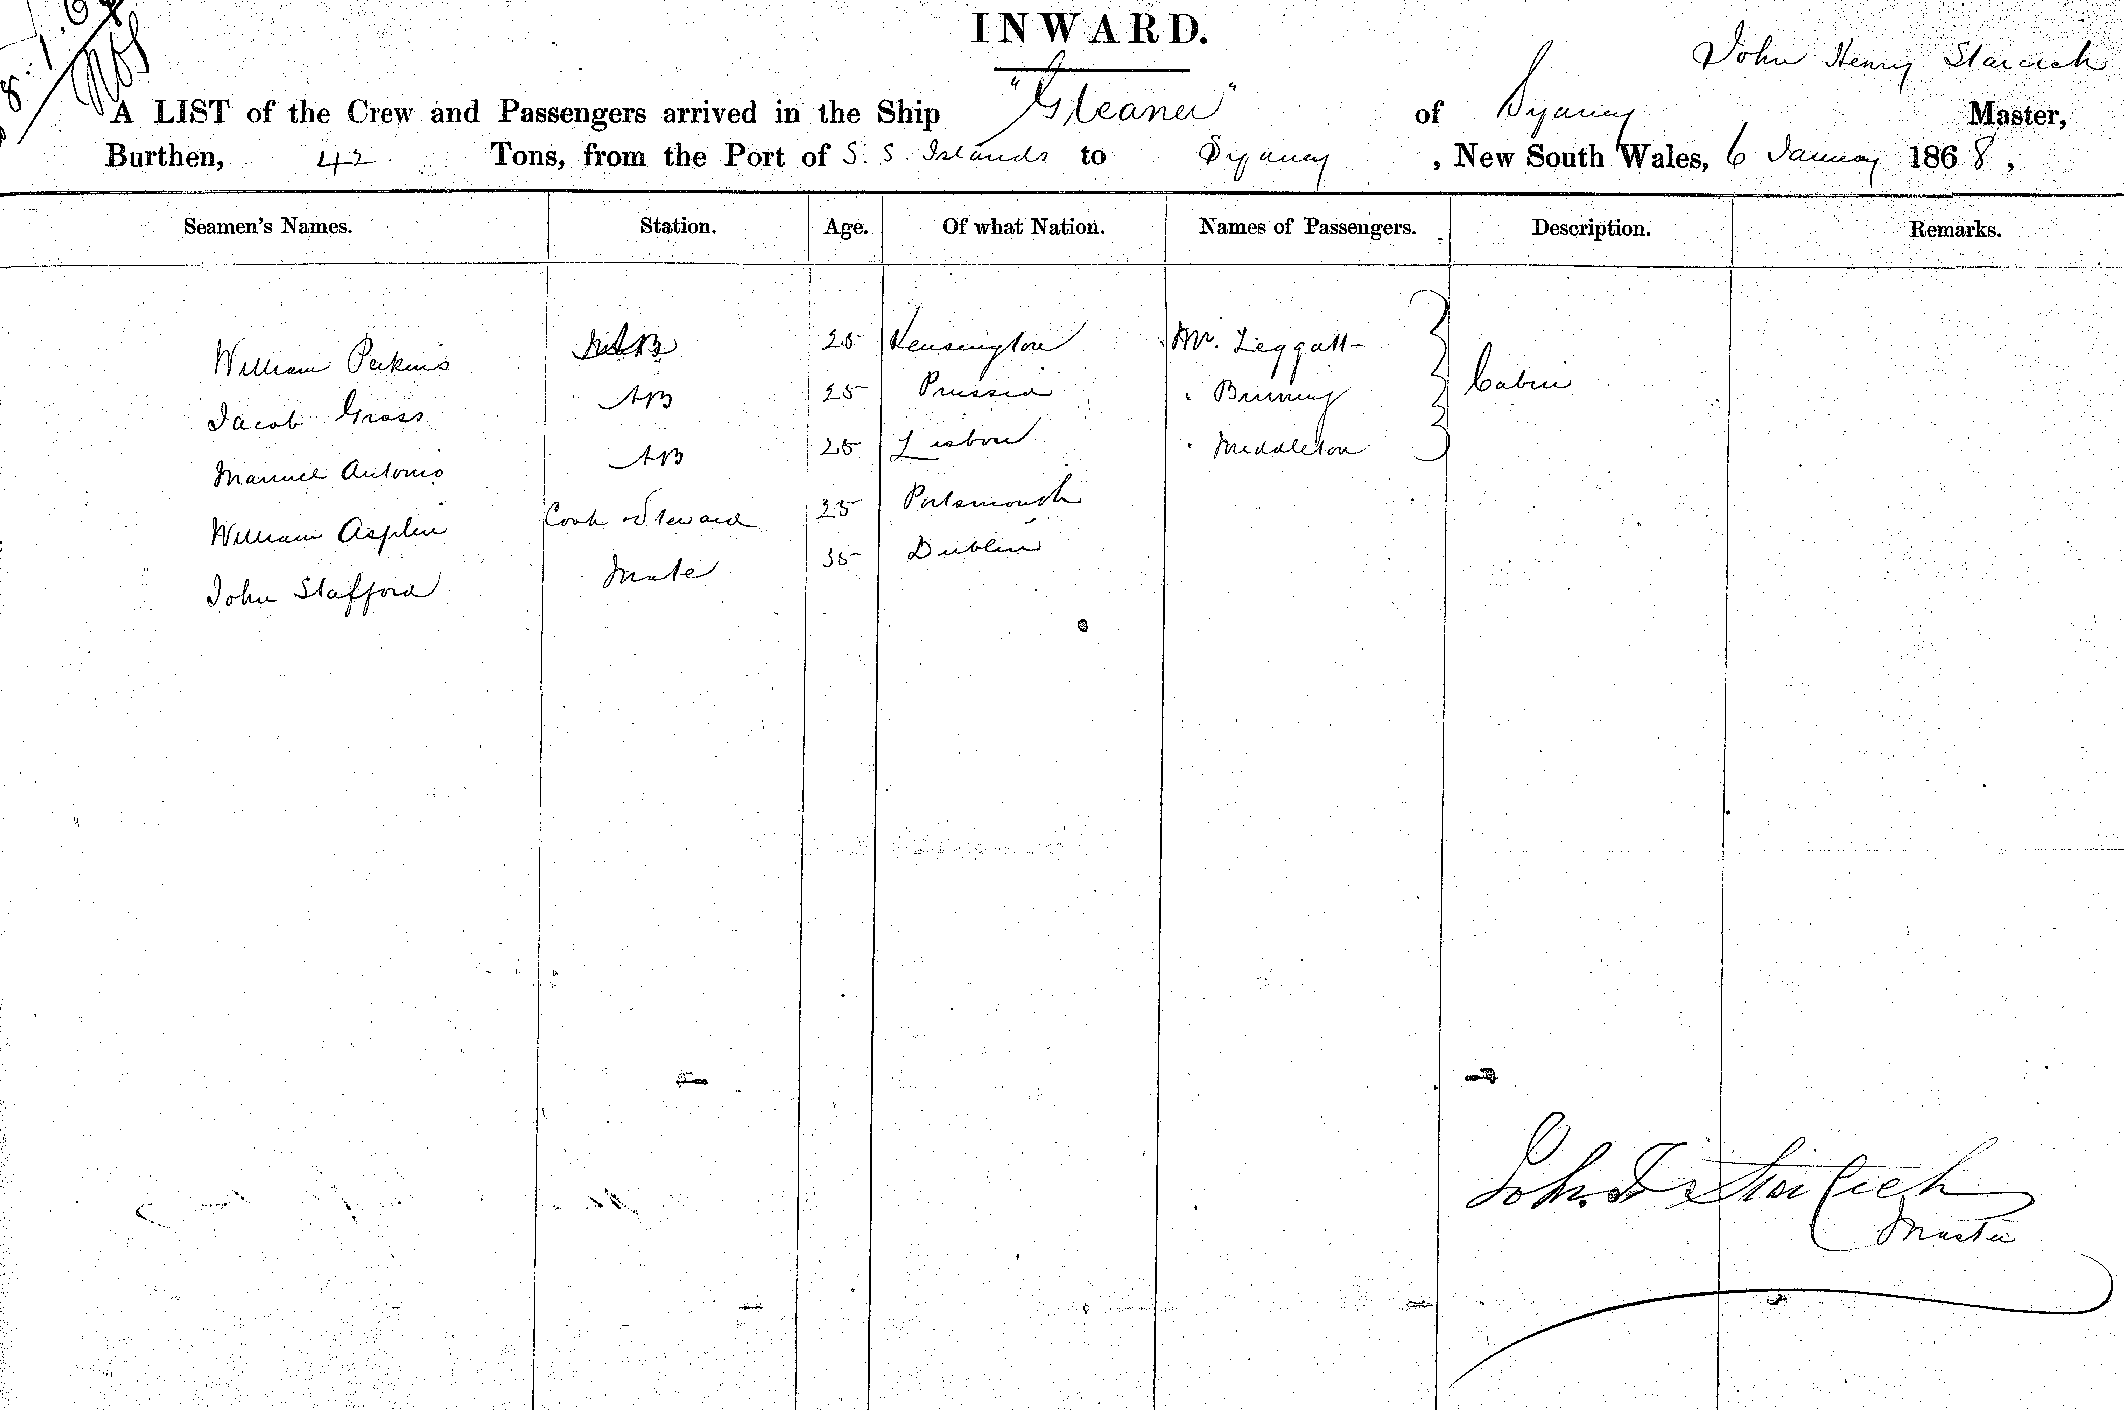 INWARD.
John Henry
A LIST of the Crew and Passengers arrived in the Ship "Gleaner" of Sydney Master,
Burthen, 42 Tons, from the Port of S. S. Islands to Sydney, New South Wales, 6 January 1868,
Seamen's Names. Station. Age. Of what Nation. Names of Passengers. Description. Remarks.
William Perkins AB 25 Kensington Mr. Leggatt
Jacob Gross AB 25 Prussia " Brunning Cabin
Manuel Antonio AB 25 Lisbon " Middleton
William Asplin Cook & Steward 25 Portsmouth
John Stafford Mate 35 Dublin
John
Master